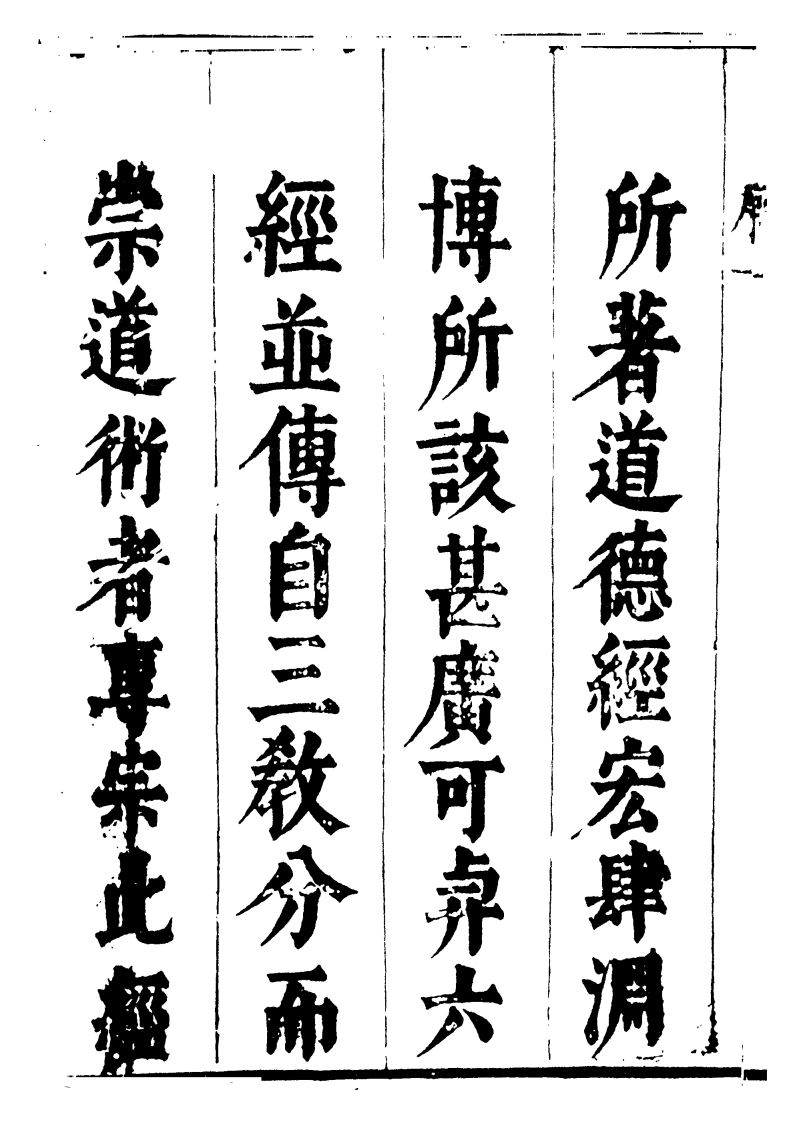 序
一
所著道德經宏肆淵
博所該甚廣可與六
經並傳自三敎分而
崇道術者專宗此經